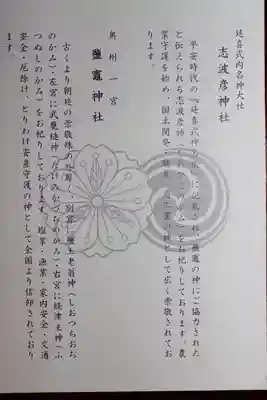 延喜式内名神大社
志波彦神社
平安時代の『延喜式神名帳』に記載され、鹽竈の神にご協力された
と伝えられる志波彦神(しわひこのかみ)をお祀りしております。農
業守護を始め、国土開発・殖産・産業の神として広く崇敬されてお
ります。
奥州一宮
鹽竈神社
古くより朝廷の崇敬殊の外篤く、別宮に鹽土老翁神(しおつちおぢ
のかみ)、左宮に武甕槌神(たけみかづちのかみ)、右宮に経津主神(ふ
つぬしのかみ)をお祀りしております。塩業・漁業・家内安全・交通
安全・厄除け、とりわけ安産守護の神として全国より信仰されており
ます。